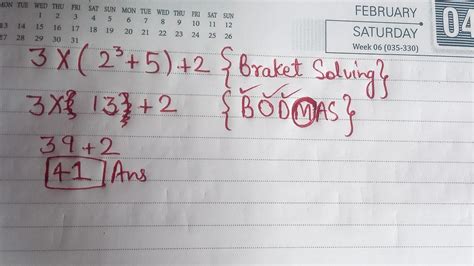 MON TUE WED THU FRI SAT SUN MON TUE WED THU FRI SAT SUN
1 2 3 4 5
13 14 15 16 17 18 19 6 7 8 9 10 11 12
27 28 29 30 31 20 21 22 23 24 25 26
FEBRUARY
SATURDAY
Week 06 (035-330)
04
3 × (2³+5)+2 {Braket Solving}
3×{13}+2 {BODMAS}
39+2
41 Ans